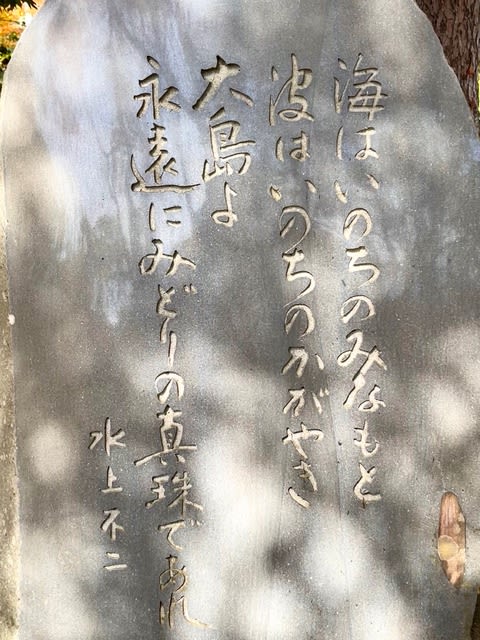 海はいのちのみなもと
波はいのちのかがやき
大島よ
永遠にみどりの真珠であれ
水上不二